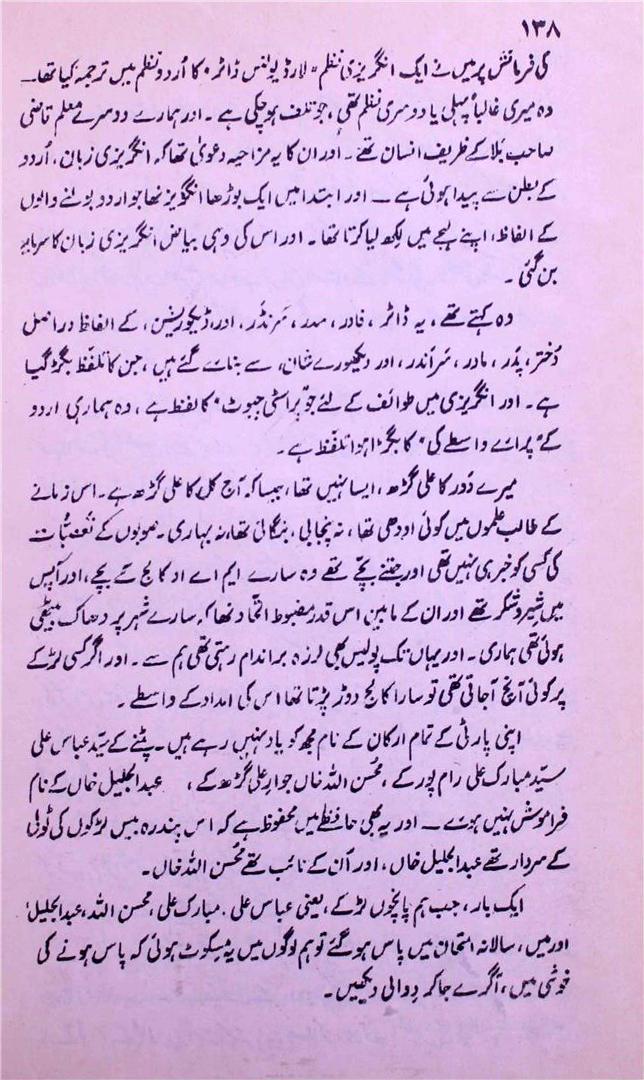 ۱۳۸
کی فرمائش پر میں نے ایک انگریزی نظم "لارڈ یولنس ڈاٹر" کا اُردو نظم میں ترجمہ کیا تھا۔
وہ میری غالباً پہلی یا دوسری نظم تھی، جو تلف ہو چکی ہے۔ اور ہمارے دوسرے معلم قاضی
صاحب بلا کے ظریف انسان تھے۔ اور ان کا یہ مزاحیہ دعویٰ تھا کہ انگریزی زبان، اُردو
کے بطن سے پیدا ہوئی ہے — اور ابتدا میں ایک بوڑھا انگریز تھا جو اردو بولنے والوں
کے الفاظ، اپنے لہجے میں لکھ لیا کرتا تھا۔ اور اس کی وہی بیاض انگریزی زبان کا سرمایہ
بن گئی۔
وہ کہتے تھے، یہ ڈاٹر، فادر، مدر، سَرنڈر، اور ڈیکوریشن، کے الفاظ دراصل
دُختر، پِدر، مادر، سَر اندر، اور دیکھورے شان، سے بنائے گئے ہیں، جن کا تلفظ بگڑ گیا
ہے۔ اور انگریزی میں طوائف کے لئے جو "پراسٹی چیوٹ" کا لفظ ہے، وہ ہماری اردو
کے "پرائے واسطے کی" کا بگڑا ہوا تلفظ ہے۔
میرے دَور کا علی گڑھ، ایسا نہیں تھا، جیسا کہ آج کل کا علی گڑھ ہے۔ اس زمانے
کے طالب علموں میں کوئی اودھی تھا، نہ پنجابی، بنگالی تھا، نہ بہاری۔ صوبوں کے تعصّبات
کی کسی کو خبر ہی نہیں تھی اور جتنے بچّے تھے وہ سارے ایم اے او کالج کے بچے، اور آپس
میں شیر و شکر تھے اور ان کے مابین اس قدر مضبوط اتّحاد تھا کہ سارے شہر پر دھاک بیٹھی
ہوئی تھی ہماری۔ اور یہاں تک پولیس بھی لرزہ براندام رہتی تھی ہم سے۔ اور اگر کسی لڑکے
پر کوئی آنچ آ جاتی تھی تو سارا کالج دوڑ پڑتا تھا اس کی امداد کے واسطے۔
اپنی پارٹی کے تمام ارکان کے نام مجھ کو یاد نہیں رہے ہیں۔ پٹنے کے سیّد عباس علی
سیّد مبارک علی رام پور کے، مُحسن اللہ خاں جوارِ علی گڑھ کے، عبدالجلیل خاں کے نام
فراموش نہیں ہوئے — اور یہ بھی حافظے میں محفوظ ہے کہ اس پندرہ بیس لڑکوں کی ٹولی
کے سردار تھے عبدالجلیل خاں، اور اُن کے نائب تھے مُحسن اللہ خاں۔
ایک بار، جب ہم پانچوں لڑکے، یعنی عباس علی، مبارک علی، محسن اللہ، عبدالجلیل
اور میں، سالانہ امتحان میں پاس ہو گئے تو ہم لوگوں میں یہ مسکوٹ ہوئی کہ پاس ہونے کی
خوشی میں، آگرے جا کر دِوالی دیکھیں۔